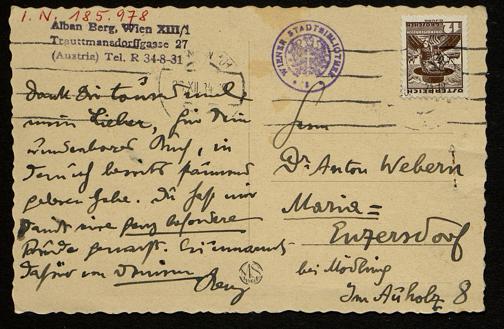 I. N. 185.978
Alban Berg, Wien XIII/1
Trauttmansdorffgasse 27
(Austria) Tel. R 34-8-31
WIENER STADTBIBLIOTHEK
ÖSTERREICH
Dank Dir tausendmal
mein Lieber, für Dein
wunderbares Buch, in
dem ich bereits
gelesen habe. Du hast mir
damit eine ganz besondere
Freude gemacht.
dafür von Deinem
Berg
Herrn
Dr Anton Webern
Maria=
Enzersdorf
bei Mödling
Im Auholz 8